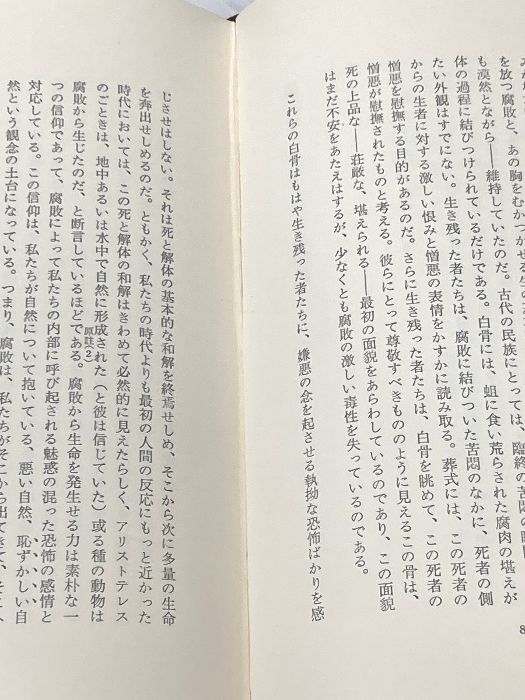 を放つ腐敗と、あの胸をむかつかせ
も漠然とながら――維持していたのだ。古代の民族にとっては、臨終の苦悶の時
体の過程に結びつけられているだけである。白骨には、蛆に食い荒らされた腐肉の堪えが
たい外観はすでにない。生き残った者たちは、腐敗に結びついた苦悶のなかに、死者の側
からの生者に対する激しい恨みと憎悪の表情をかすかに読み取る。葬式には、この死者の
憎悪を慰撫する目的があるのだ。さらに生き残った者たちは、白骨を眺めて、この死者の
憎悪が慰撫されたものと考える。彼らにとって尊敬すべきもののように見えるこの骨は、
死の上品な――荘厳な、堪えられる――最初の面貌をあらわしているのであり、この面貌
はまだ不安をあたえはするが、少なくとも腐敗の激しい毒性を失っているのである。
これらの白骨はもはや生き残った者たちに、嫌悪の念を起させる執拗な恐怖ばかりを感
8
じさせはしない。それは死と解体の基本的な和解を終焉せしめ、そこから次に多量の生命
を奔出せしめるのだ。ともかく、私たちの時代よりも最初の人間の反応にもっと近かった
時代においては、この死と解体の和解はきわめて必然的に見えたらしく、アリストテレス
のごときは、地中あるいは水中で自然に形成された(と彼は信じていた)或る種の動物は
腐敗から生じたのだ、と断言しているほどである。腐敗から生命を発生せる力は素朴な一
原註2
つの信仰であって、腐敗によって私たちの内部に呼び起される魅惑の混った恐怖の感情と
対応している。この信仰は、私たちが自然について抱いている、悪い自然、恥ずかしい自
然という観念の土台になっている。つまり、腐敗は、私たちがそこから出てきて、そこへ